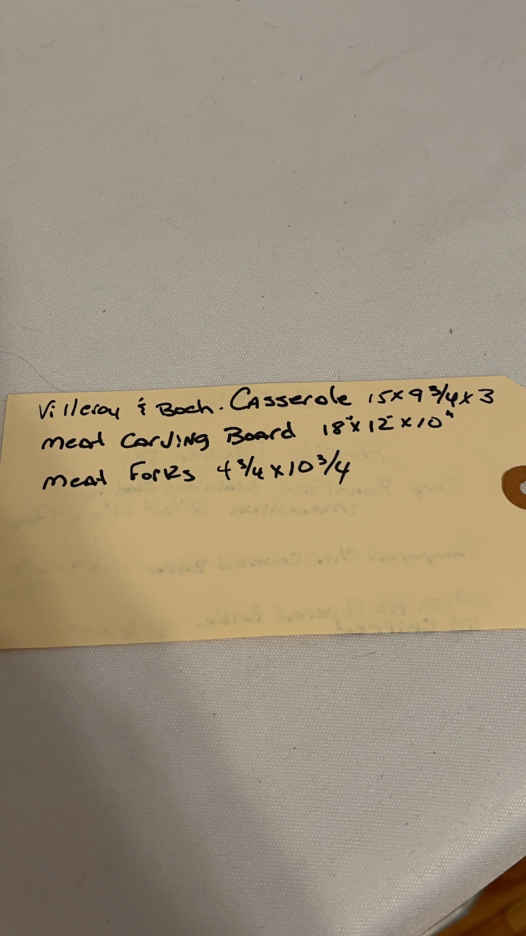 Villeroy & Boch. Casserole 15x9 3/4x3
meat Carving Board 18"x12"x10"
meat Forks 4 3/4x10 3/4